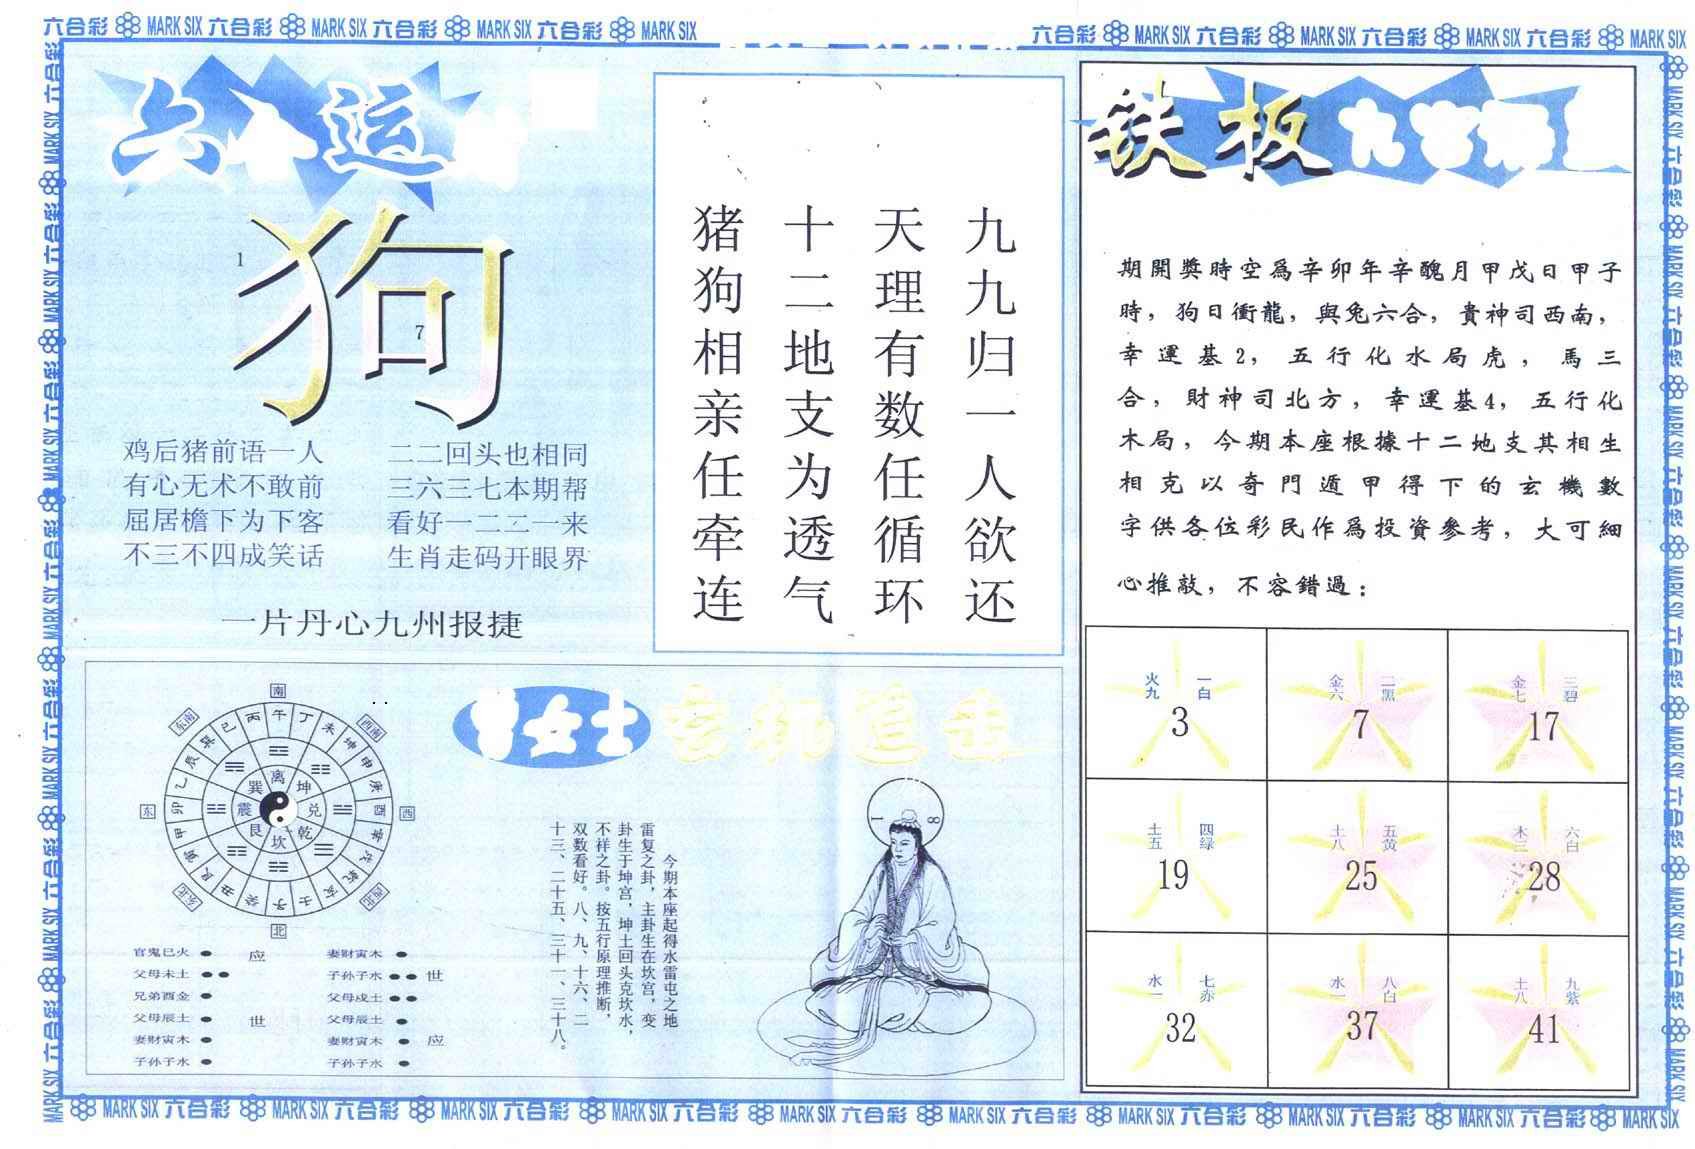 六合彩 MARK SIX 六合彩 MARK SIX 六合彩 MARK SIX 六合彩 MARK SIX
六合彩 MARK SIX 六合彩 MARK SIX 六合彩 MARK SIX 六合彩 MARK SIX
六
运
狗
1
7
鸡后猪前语一人
有心无术不敢前
屈居檐下为下客
不三不四成笑话
二二回头也相同
三六三七本期帮
看好一二二一来
生肖走码开眼界
一片丹心九州报捷
九九归一人欲还
天理有数任循环
十二地支为透气
猪狗相亲任牵连
铁板九宫
期開獎時空爲辛卯年辛醜月甲戊日甲子
時，狗日衝龍，與兔六合，貴神司西南，
幸運基2，五行化水局虎，馬三
合，財神司北方，幸運基4，五行化
木局，今期本座根據十二地支其相生
相克以奇門遁甲得下的玄機數
字供各位彩民作爲投資參考，大可細
心推敲，不容錯過：
火九 一白
3
金六 二黑
7
金七 三碧
17
土五 四绿
19
土八 五黄
25
木三 六白
28
水一 七赤
32
水一 八白
37
土八 九紫
41
曾女士玄机追击
南
东南
西南
东
西
东北
西北
北
丙午丁未坤申庚酉辛戌乾亥壬子癸丑艮寅甲卯乙辰巽巳
离坤兑乾坎艮震巽
官鬼巳火 应
父母未土
兄弟酉金
父母辰土 世
妻财寅木
子孙子水
妻财寅木
子孙子水 世
父母戌土
父母辰土
妻财寅木 应
子孙子水
今期本座起得水雷屯之地
雷复之卦，主卦生在坎宫，变
卦生于坤宫，坤土回头克坎水，
不祥之卦。按五行原理推断，
双数看好。八、九、十六、二
十三、二十五、三十一、三十八。
1 8
MARK SIX 六合彩 MARK SIX 六合彩 MARK SIX 六合彩 MARK SIX 六合彩 MARK SIX 六合彩 MARK SIX 六合彩 MARK SIX 六合彩 MARK SIX 六合彩 MARK SIX 六合彩 MARK SIX